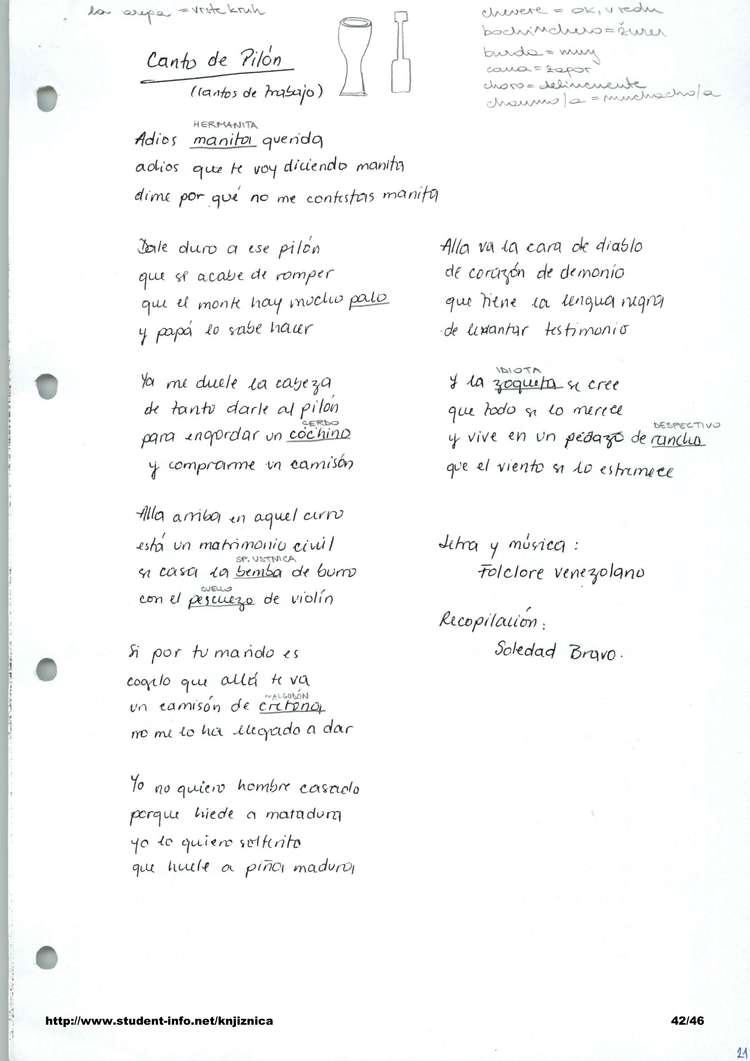 la arepa = vrste kruh
chevere = ok, v redu
bochinchero = žurer
burda = muy
cana = zapor
choro = delincuente
chaumo/a = muchacho/a
Canto de Pilón
(cantos de trabajo)
HERMANITA
Adios manita querida
adios que te voy diciendo manita
dime por qué no me contestas manita
Dale duro a ese pilón
que se acabe de romper
que el monte hay mucho palo
y papá lo sabe hacer
Ya me duele la cabeza
de tanto darle al pilón
CERDO
para engordar un cochino
y comprarme un camisón
Alla arriba en aquel cerro
está un matrimonio civil
SP. USTNICA
se casa la bemba de burro
CUELLO
con el pescuezo de violín
Si por tu marido es
cogelo que allá te va
~ALGODÓN
un camisón de cretona
no me lo ha llegado a dar
Yo no quiero hombre casado
porque hiede a matadura
yo lo quiero solterito
que huele a piña madura
Alla va la cara de diablo
de corazón de demonio
que tiene la lengua negra
de levantar testimonio
IDIOTA
y la zoqueta se cree
que todo se lo merece
DESPECTIVO
y vive en un pedazo de rancho
que el viento se lo estremece
Letra y música :
Folclore venezolano
Recopilación :
Soledad Bravo.
http://www.student-info.net/knjiznica
42/46
21